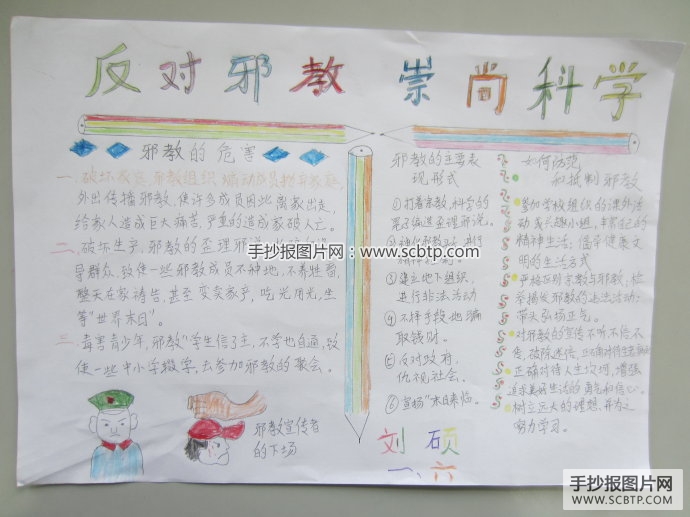 反对邪教 崇尚科学
邪教的危害
一、破坏家庭,邪教组织,煽动成员抛弃家庭,
外出传播邪教,使许多成员因此离家出走,
给家人造成巨大痛苦,严重的造成家破人亡。
二、破坏生产,邪教的歪理邪
导群众,致使一些邪教成员不种地,不养牲畜,
整天在家祷告,甚至变卖家产,吃光用光,坐
等“世界末日”。
三、毒害青少年,邪教“学生信了主,不学也自通,致
使一些中小学辍学,去参加邪教的聚会。
邪教宣传者
的下场
邪教的主要表
现形式
①打着宗教,科学的
幌子编造歪理邪说。
②神化邪教 进行
精神控制。
③建立地下组织,
进行非法活动
④不择手段地骗
取钱财。
⑤反对政府,
仇视社会。
⑥宣扬“末日来临。
刘硕
一、六
如何防范
和抵制邪教
参加学校组织的课外活
动或兴趣小组,丰富自己的
精神生活;倡导健康文
明的生活方式
严格区别宗教与邪教,检
举揭发邪教的违法活动;
带头弘扬正气。
对邪教的宣传不听不信不
传,破除迷信,正确对待生老病死
正确对待人生坎坷,增强
追求美好生活的勇气和信心。
树立远大的理想,并为之
努力学习。
手抄报图片网:www.scbtp.com
手抄报图片网
WWW.SCBTP.COM